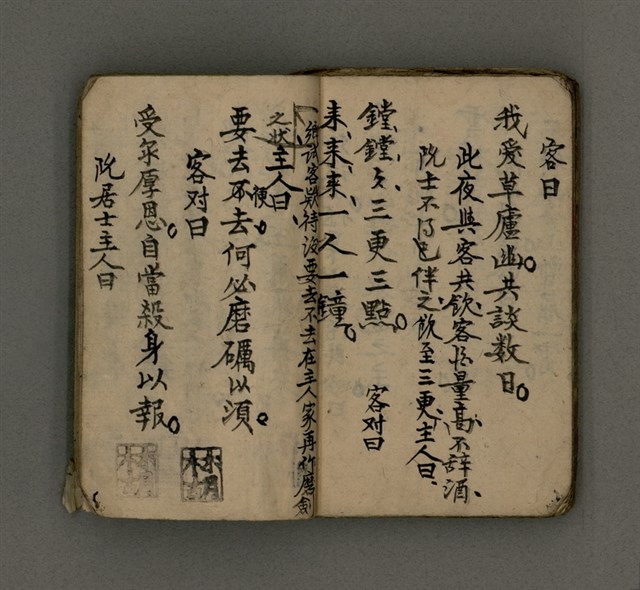 客曰
我愛草廬幽共談数日。
此夜與客共飲、客恃量高、不辞酒、
阮士不乜伴之飲至三更、主人曰、
鏜鏜々三更三點。
客对曰
来、来、来、一人一鐘。
試客欺待没要去不去在主人家再作磨劍
之状主人曰
要去不去便何必磨礪以須。
客对曰
受爾厚恩。自當殺身以報。
阮居士主人曰